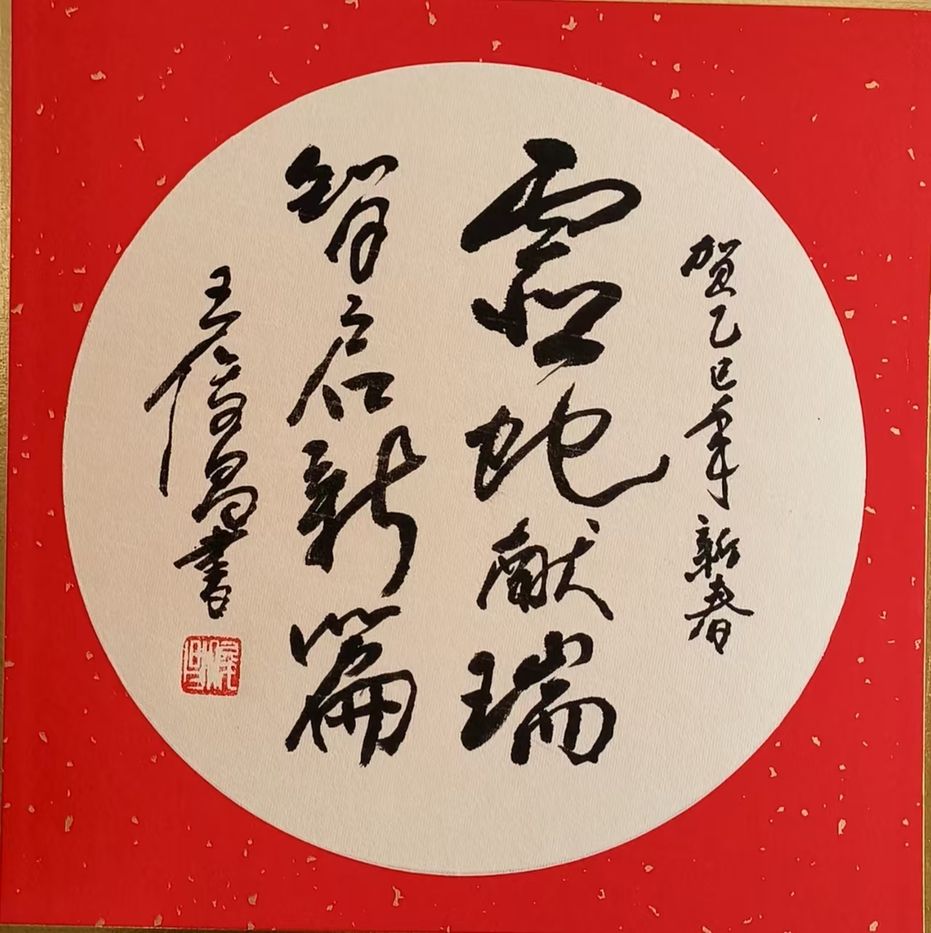 贺乙巳年新春
灵蛇献瑞
智启新篇
王俊昌书